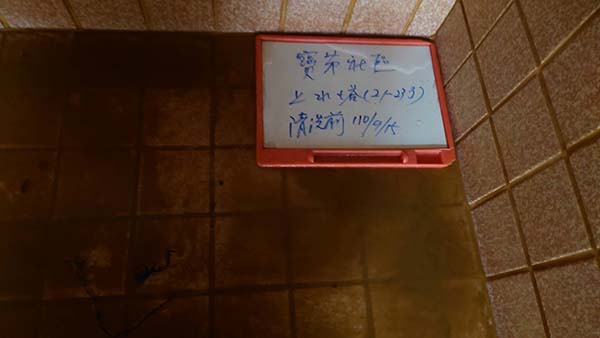 寶第社區
上水塔(21-23号)
清洗前 110/9/15